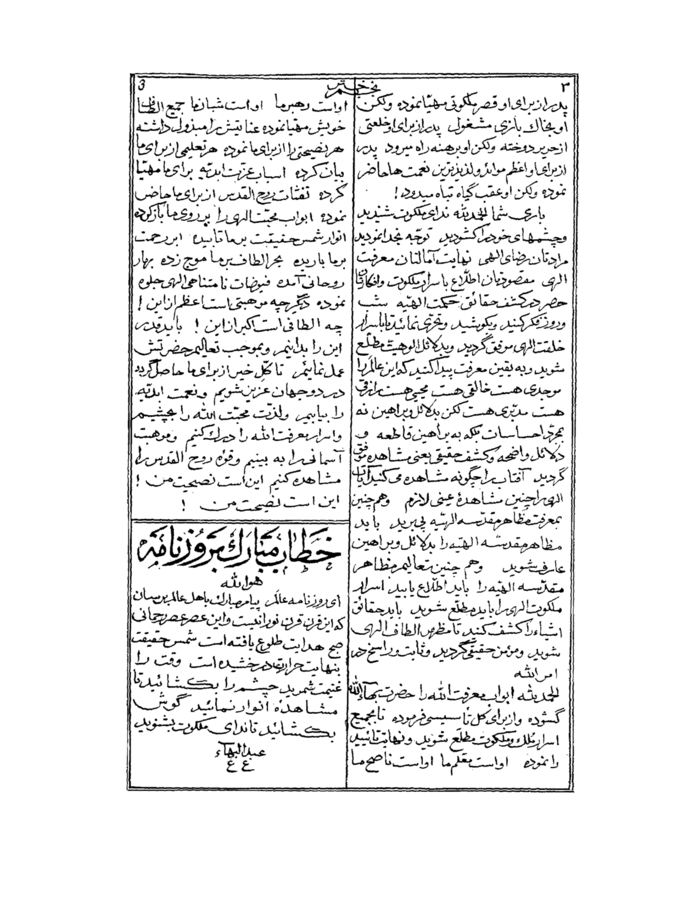 ۳
نجم باختر
پدر از برای او قصر ملکوتی مهیا نموده ولکن
او بخاک بازی مشغول پدر از برای او خلعتی
از حریر دوخته ولکن او برهنه راه میرود پدر
از برای او اعظم موائد و لذیذترین نعمت ها حاضر
نموده ولکن او عقب گیاه تباه میدود !
باری شما الحمدلله ندای ملکوت شنیدید
و چشمهای خود را گشودید توجه بخدا نمودید
مرادتان رضای الهی نهایت آمالتان معرفت
الهی مقصودتان اطلاع باسرار ملکوت و افکارتان
حصر در کشف حقائق حکمت الهیه شب
و روز فکر کنید و بکوشید و تحری نمائید تا باسرار
خلقت الهی موفق گردید و بدلائل الوهیت مطلع
شوید و به یقین معرفت پیدا کنید که این عالم را
موجدی هست خالقی هست محیی هست رازقی
هست مدبری هست لکن بدلائل و براهین نه
بمجرد احساسات بلکه به براهین قاطعه و
دلائل واضحه و کشف حقیقی یعنی مشاهده موفق
گردید آفتاب را چگونه مشاهده می کنید آیات
الهی را چنین مشاهدهٔ عینی لازم و هم چنین
بمعرفت مظاهر مقدسه الهیه پی برید باید
مظاهر مقدسه الهیه را بدلائل و براهین
عارف شوید و هم چنین تعالیم مظاهر
مقدسه الهیه را باید اطلاع یابید اسرار
ملکوت الهی را باید مطلع شوید باید حقائق
اشیاء را کشف کنید تا مظهر الطاف الهی
شوید و مؤمن حقیقی گردید و ثابت و راسخ در
امر الله
الحمدلله ابواب معرفت الله را حضرت بهاءالله
گشوده و از برای کل تاسیسی فرموده تا بجمیع
اسرار ملک و ملکوت مطلع شوید و نهایت تائید
را نموده او است معلم ما او است ناصح ما
او است رهبر ما او است شبان ما جمیع الطاف
خویش مهیا نموده عنایتش را مبذول داشته
هر نصیحتی را از برای ما نموده هر تعلیمی از برای ما
بیان کرده اسباب عزت ابدیه برای ما مهیا
کرده نفثات روح القدس از برای ما حاضر
نموده ابواب محبت الهی را بر روی ما باز کرده
انوار شمس حقیقت بر ما تابیده ابر رحمت
بر ما باریده بحر الطاف بر ما موج زده بهار
روحانی آمده فیوضات نامتناهی الهی جلوه
نموده دیگر چه موهبتی است اعظم از این !
چه الطافی است اکبر از این ! باید قدر
این را بدانیم و بموجب تعالیم حضرتش
عمل نمائیم تا کل خیر از برای ما حاصل گردد
در دو جهان عزیز شویم و نعمت ابدیه
را بیابیم و لذت محبت الله را بچشیم
و اسرار معرفت الله را درک کنیم و موهبت
آسمانی را به بینیم و قوه روح القدس را
مشاهده کنیم این است نصیحت من !
این است نصیحت من !
خطاب مبارک بروزنامه
هوالله
ای روزنامه عالم پیام مبارک باهل عالم برسان
که این قرن قرن نورانیست و این عصر عصر رحمانی
صبح هدایت طلوع یافته است شمس حقیقت
بنهایت حرارت درخشیده است وقت را
غنیمت شمرید چشم را بگشائید تا
مشاهدهٔ انوار نمائید گوش
بگشائید تا ندای ملکوت بشنوید
عبدالبهاء
ع ع